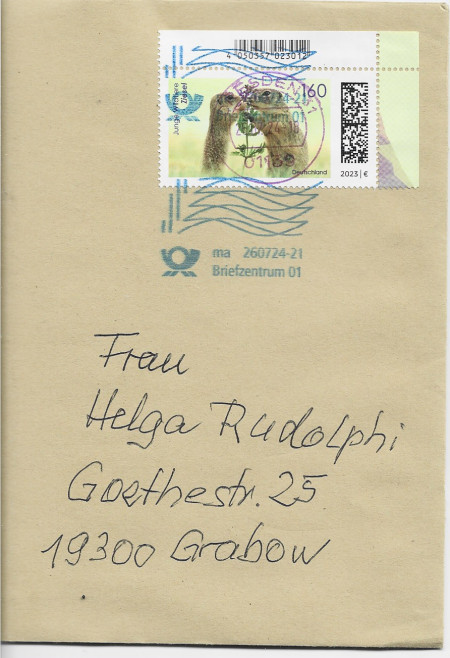 4 050357 023012
Junge Wildtiere
Ziesel
160
DRESDEN
Deutschland
2023 | €
ma 260724-21
Briefzentrum 01
Frau
Helga Rudolphi
Goethestr. 25
19300 Grabow